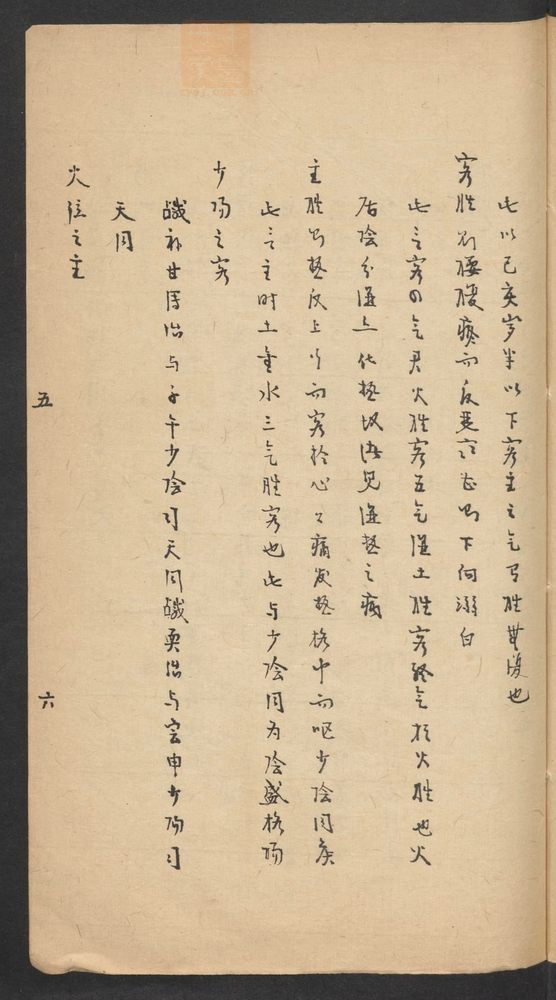 此以己亥岁半以下客主之气有胜無復也
客胜则腰腹痛而反恶寒甚则下白溺白
此言客の气君火胜客五气湿土胜客终气相火胜也火
居陰分湿土化热故见湿热之病
主胜则热反上行而客於心々痛发热格中而呕少陰同候
此言主时土金水三气胜客也此与少陰同为陰盛格陽
少陽之客
鹹补甘写治与子午少陰司天同鹹耎治与寅申少陽司
天同
火位之主
五
六